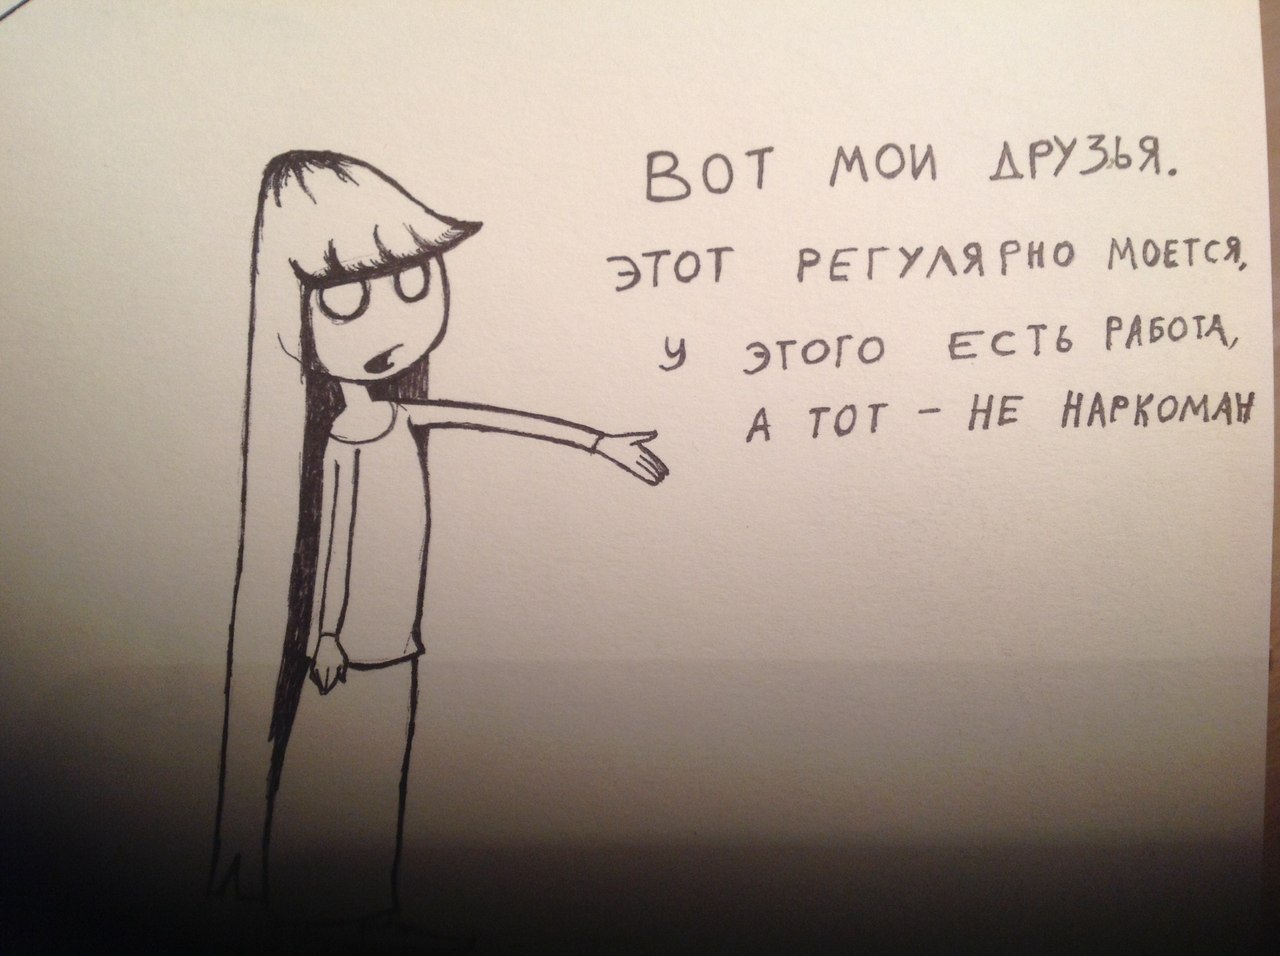 ВОТ МОИ ДРУЗЬЯ.
ЭТОТ РЕГУЛЯРНО МОЕТСЯ,
У ЭТОГО ЕСТЬ РАБОТА,
А ТОТ – НЕ НАРКОМАН